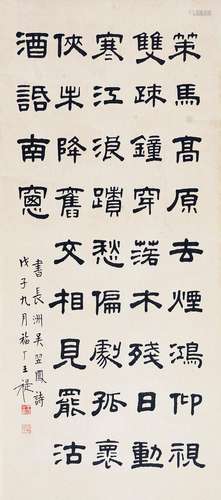 策馬高原去煙鴻仰視
雙疎鐘穿落木殘日動
寒江浪蹟愁偏劇孤褱
俠未降舊交相見罷沽
酒䛡南窻
書長洲吳翌鳳詩
戊子九月福厂王禔